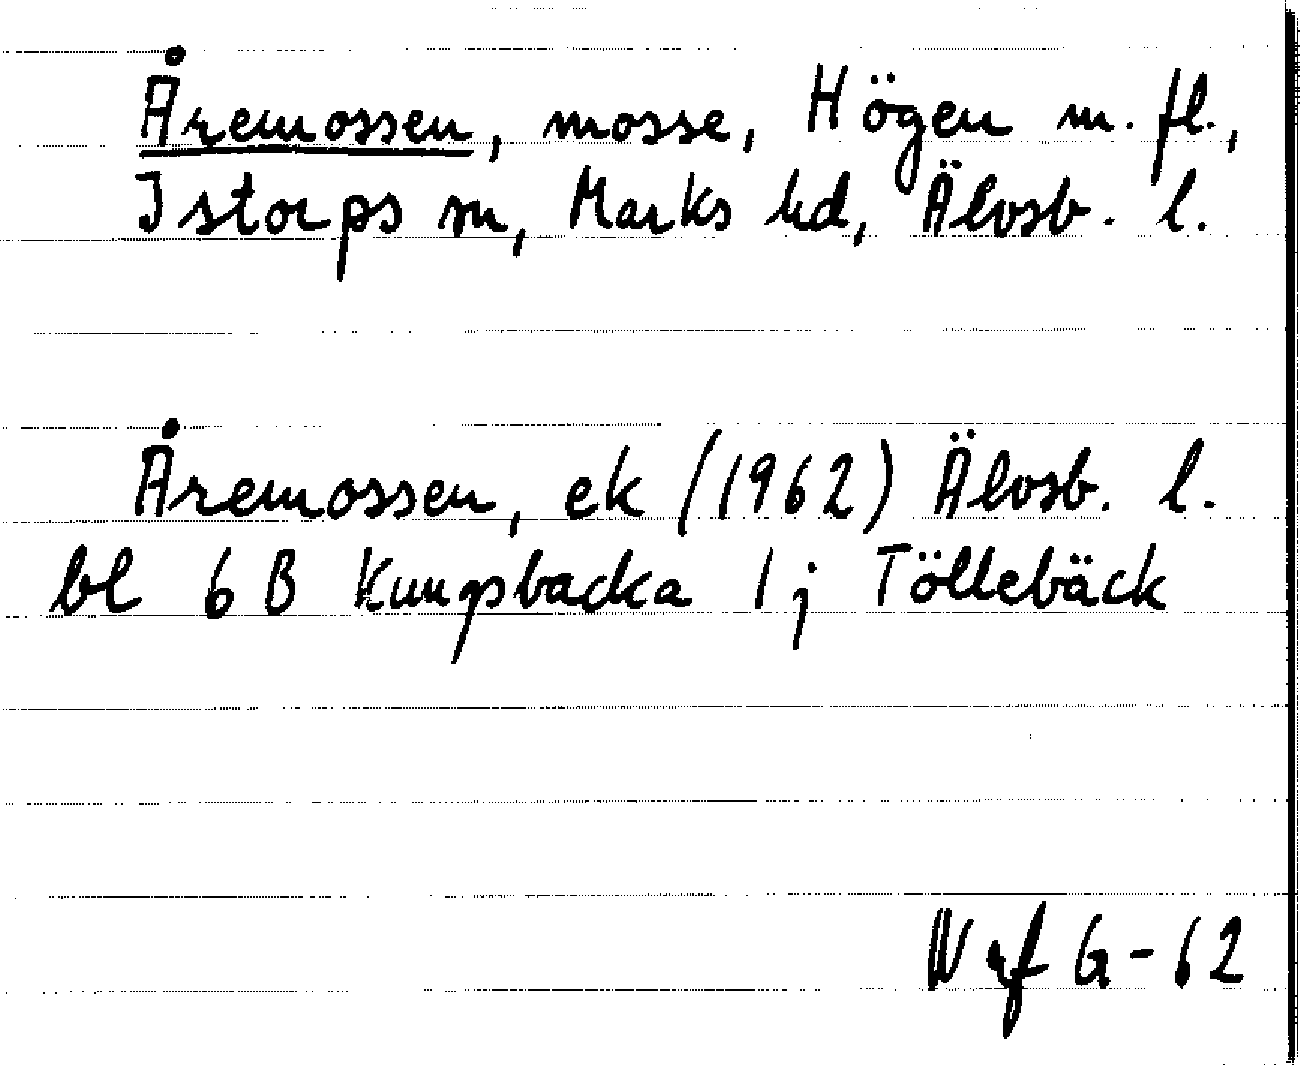 Åremossen, mosse, Högen m. fl.,
Istorps sn, Marks hd, Älvsb. l.
Åremossen, ek (1962) Älvsb. l.
bl 6 B Kungsbacka 1 j Töllebäck
G-62